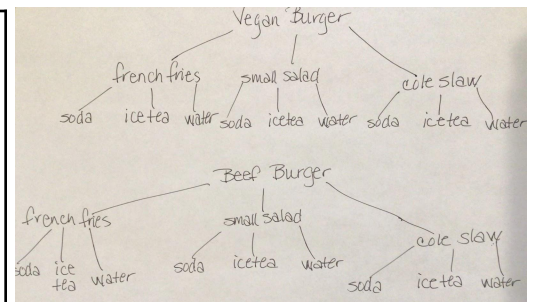 Vegan Burger
french fries small salad cole slaw
soda ice tea water soda icetea water soda icetea water
Beef Burger
french fries small salad cole slaw
soda ice tea water soda icetea water soda icetea water